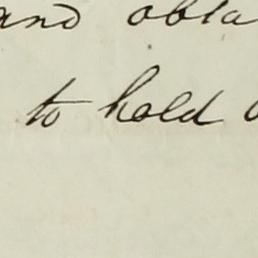 and obta
to hold